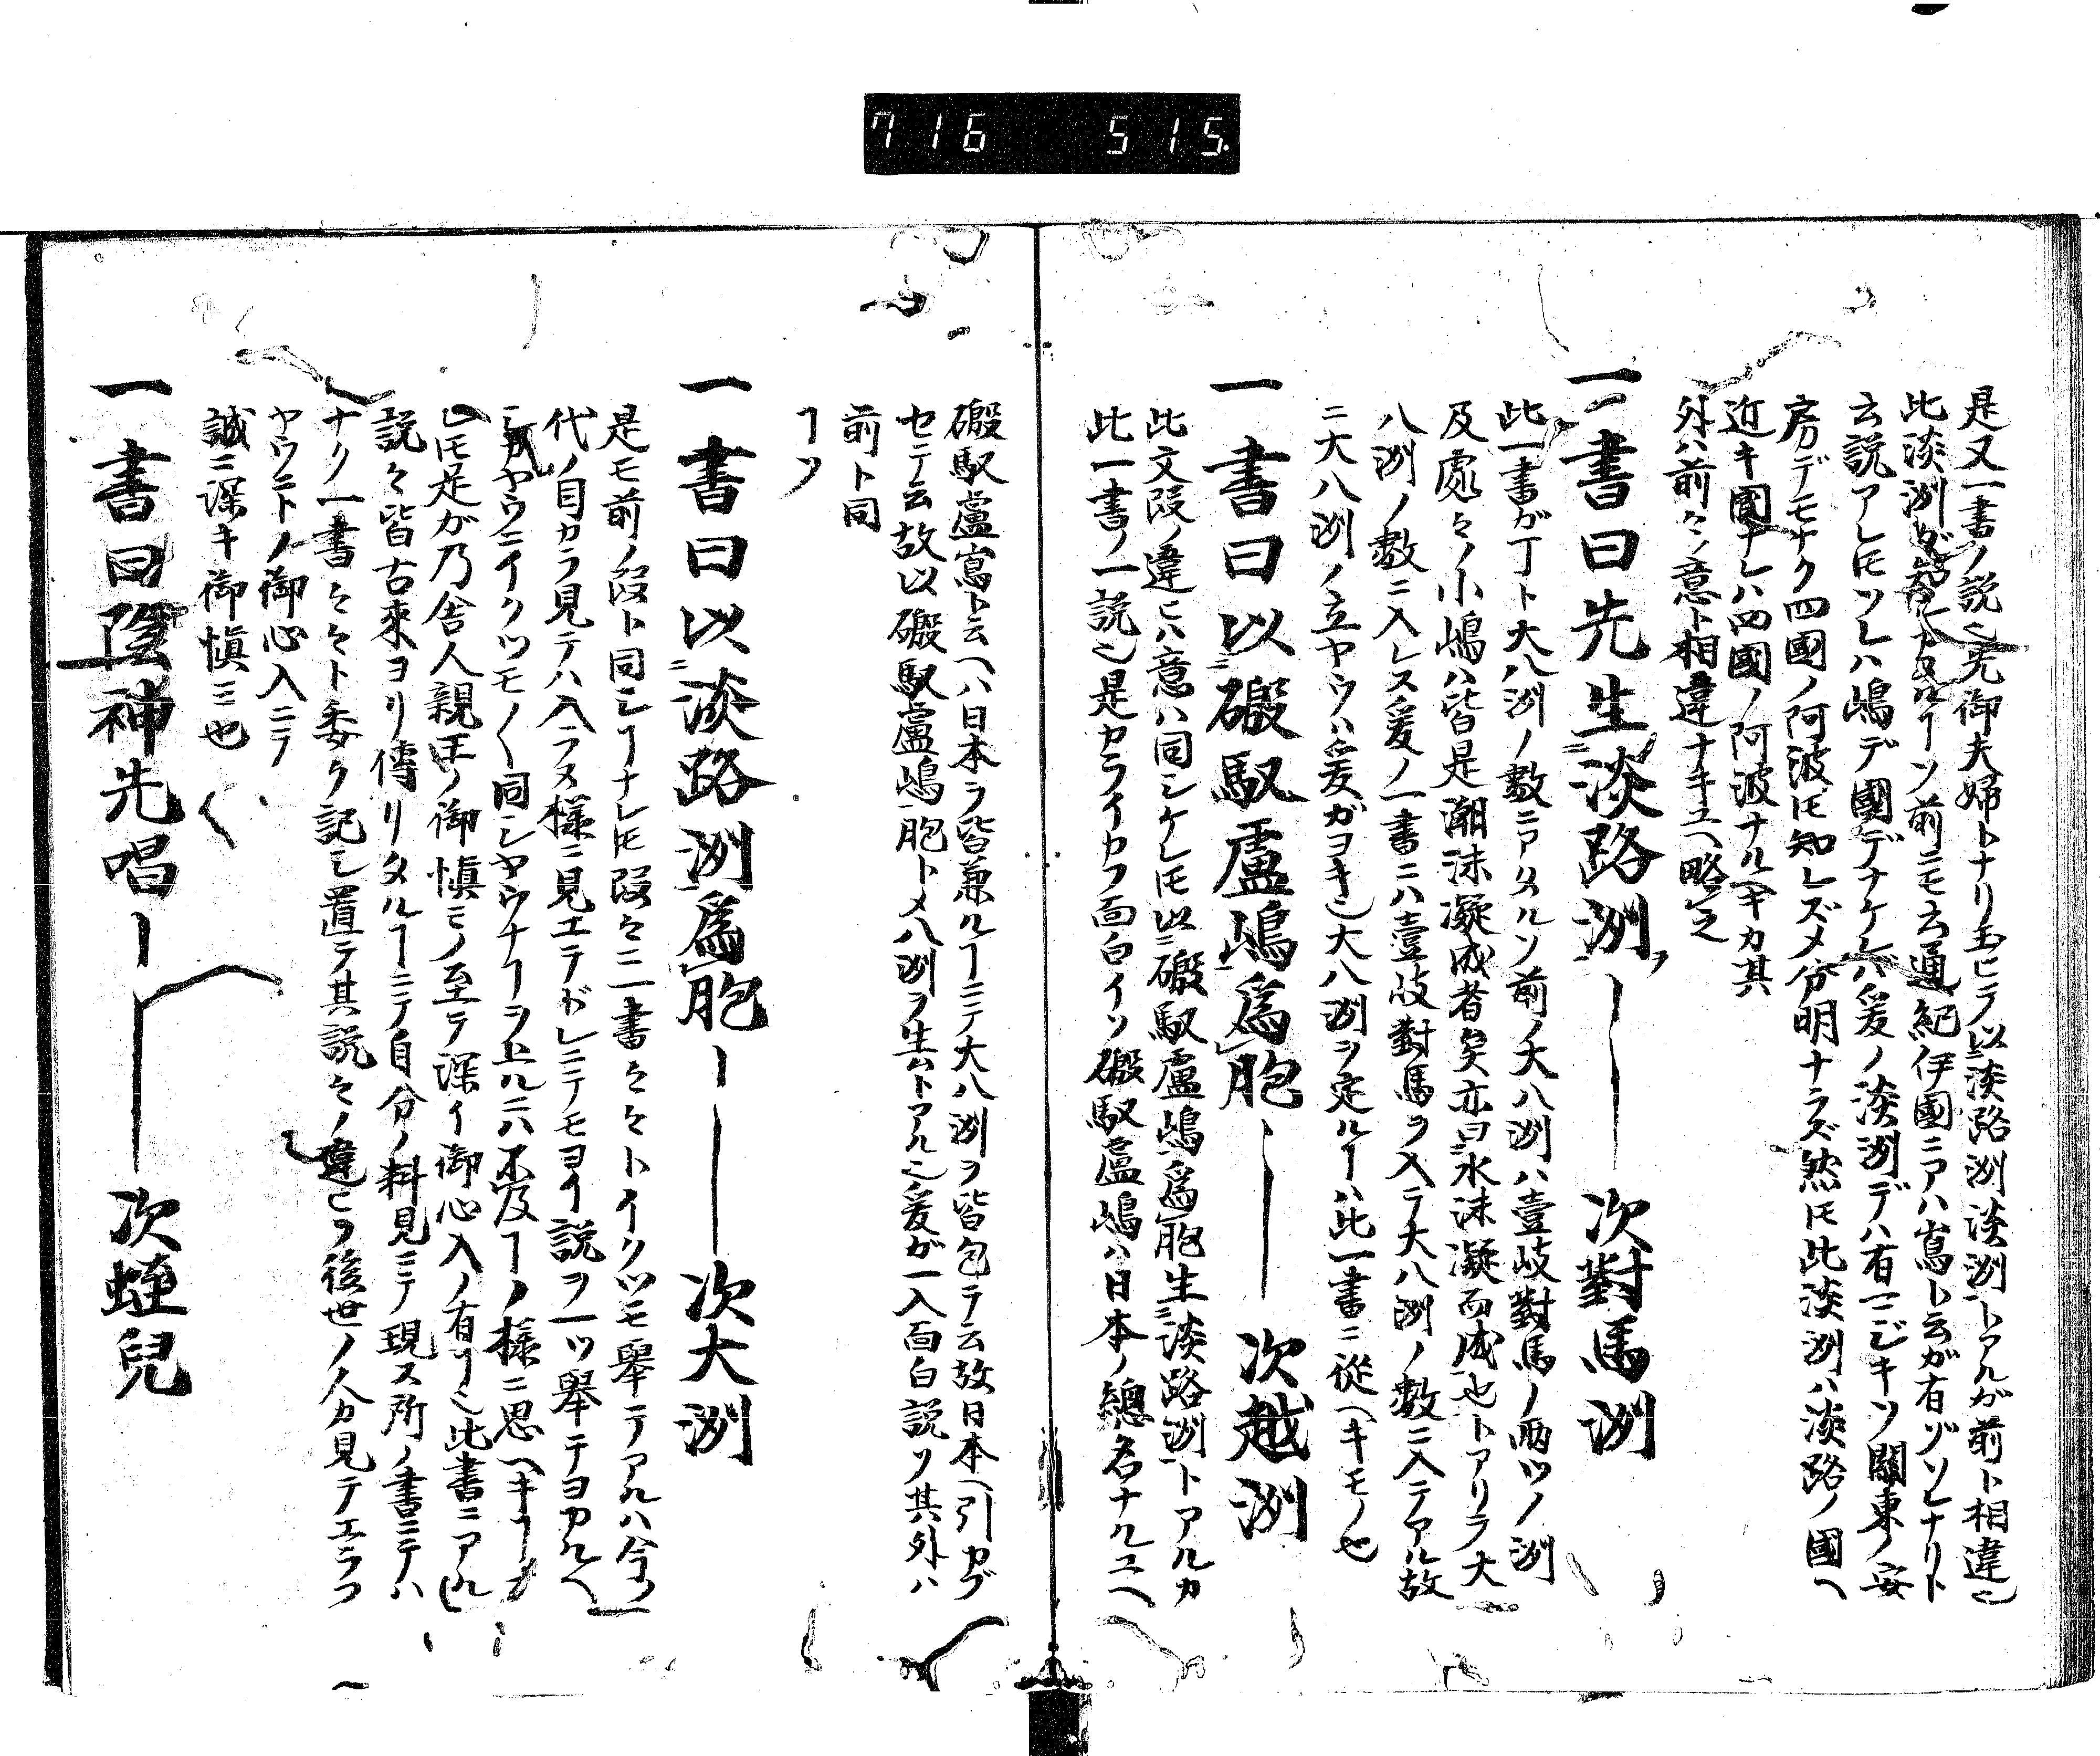 716 515
是又一書ノ説也先御夫婦トナリ玉ヒテ以淡路洲淡洲トアルガ前ト相違也
此淡洲ガ ソ前ニモ云通紀伊國ニアハ嶌ト云ガ有ゾソレナリト
云説アレ𪜈ソレハ嶋デ國デナケレバ爰ノ淡洲デハ有マジキソ關東ノ安
房デモナク四國ノ阿波𪜈知レズ〆分明ナラズ然𪜈此淡洲ハ淡路ノ國ヘ
近キ國ナレハ四國ノ阿波ナルヘキカ其
外ハ前々ノ意ト相違ナキユヘ略之
一書曰先生淡路洲 次對馬洲
此一書ガ丁ト大八洲ノ數ニアタルソ前ノ大八洲ハ壹岐對馬ノ兩ツノ洲
及處々ノ小嶋ハ皆是潮沫凝成者矣亦曰水沫凝而成也トアリテ大
八洲ノ數ニ入レス爰ノ一書ニハ壹岐對馬ヲ入テ大八洲ノ數ニ入テアル故
ニ大八洲ノ立ヤウハ爰ガヨキ也大八洲ヲ定ルヿハ此一書ニ從ヘキモノ也
一書曰以磤馭盧嶋爲胞 次越洲
此文段ノ違ヒハ意ハ同シケレ𪜈以磤馭盧嶋爲胞生淡路洲トアルカ
此一書ノ一説也是カライカフ面白イソ磤馭盧嶋ハ日本ノ總名ナルユヘ
磤馭盧嶌ト云ヘハ日本ヲ皆兼ルヿニテ大八洲ヲ皆包テ云故日本ヘ引カブ
セテ云故以磤馭盧嶋胞ト〆八洲ヲ生ムトアル也爰ガ一入面白説ソ其外ハ
前ト同
ヿソ
一書曰以淡路洲爲胞 次大洲
是モ前ノ段ト同シヿナレ𪜈段々ニ一書々々トイクツモ舉テアルハ今ノ
代ノ目カラ見テハ入ラヌ樣ニ見エテドレニテモヨイ説ヲ一ツ舉テヨカルヘ
シカヤウニイクツモ〳〵同シヤウナヿヲ上ルニハ不及ヿノ樣ニ思ヘキヿ
𪜈是ガ乃舍人親王ノ御愼ミノ至テ深イ御心入ノ有ヿ也此書ニアル
説々皆古來ヨリ傳リタルヿニテ自分ノ料見ニテ現ス所ノ書ニテハ
ナク一書々々ト委ク記シ置テ其説々ノ違ヒヲ後世ノ人カ見テエラフ
ヤウニトノ御心入ニテ
誠ニ深キ御愼ミ也〳〵
一書曰陰神先唱 次蛭兒